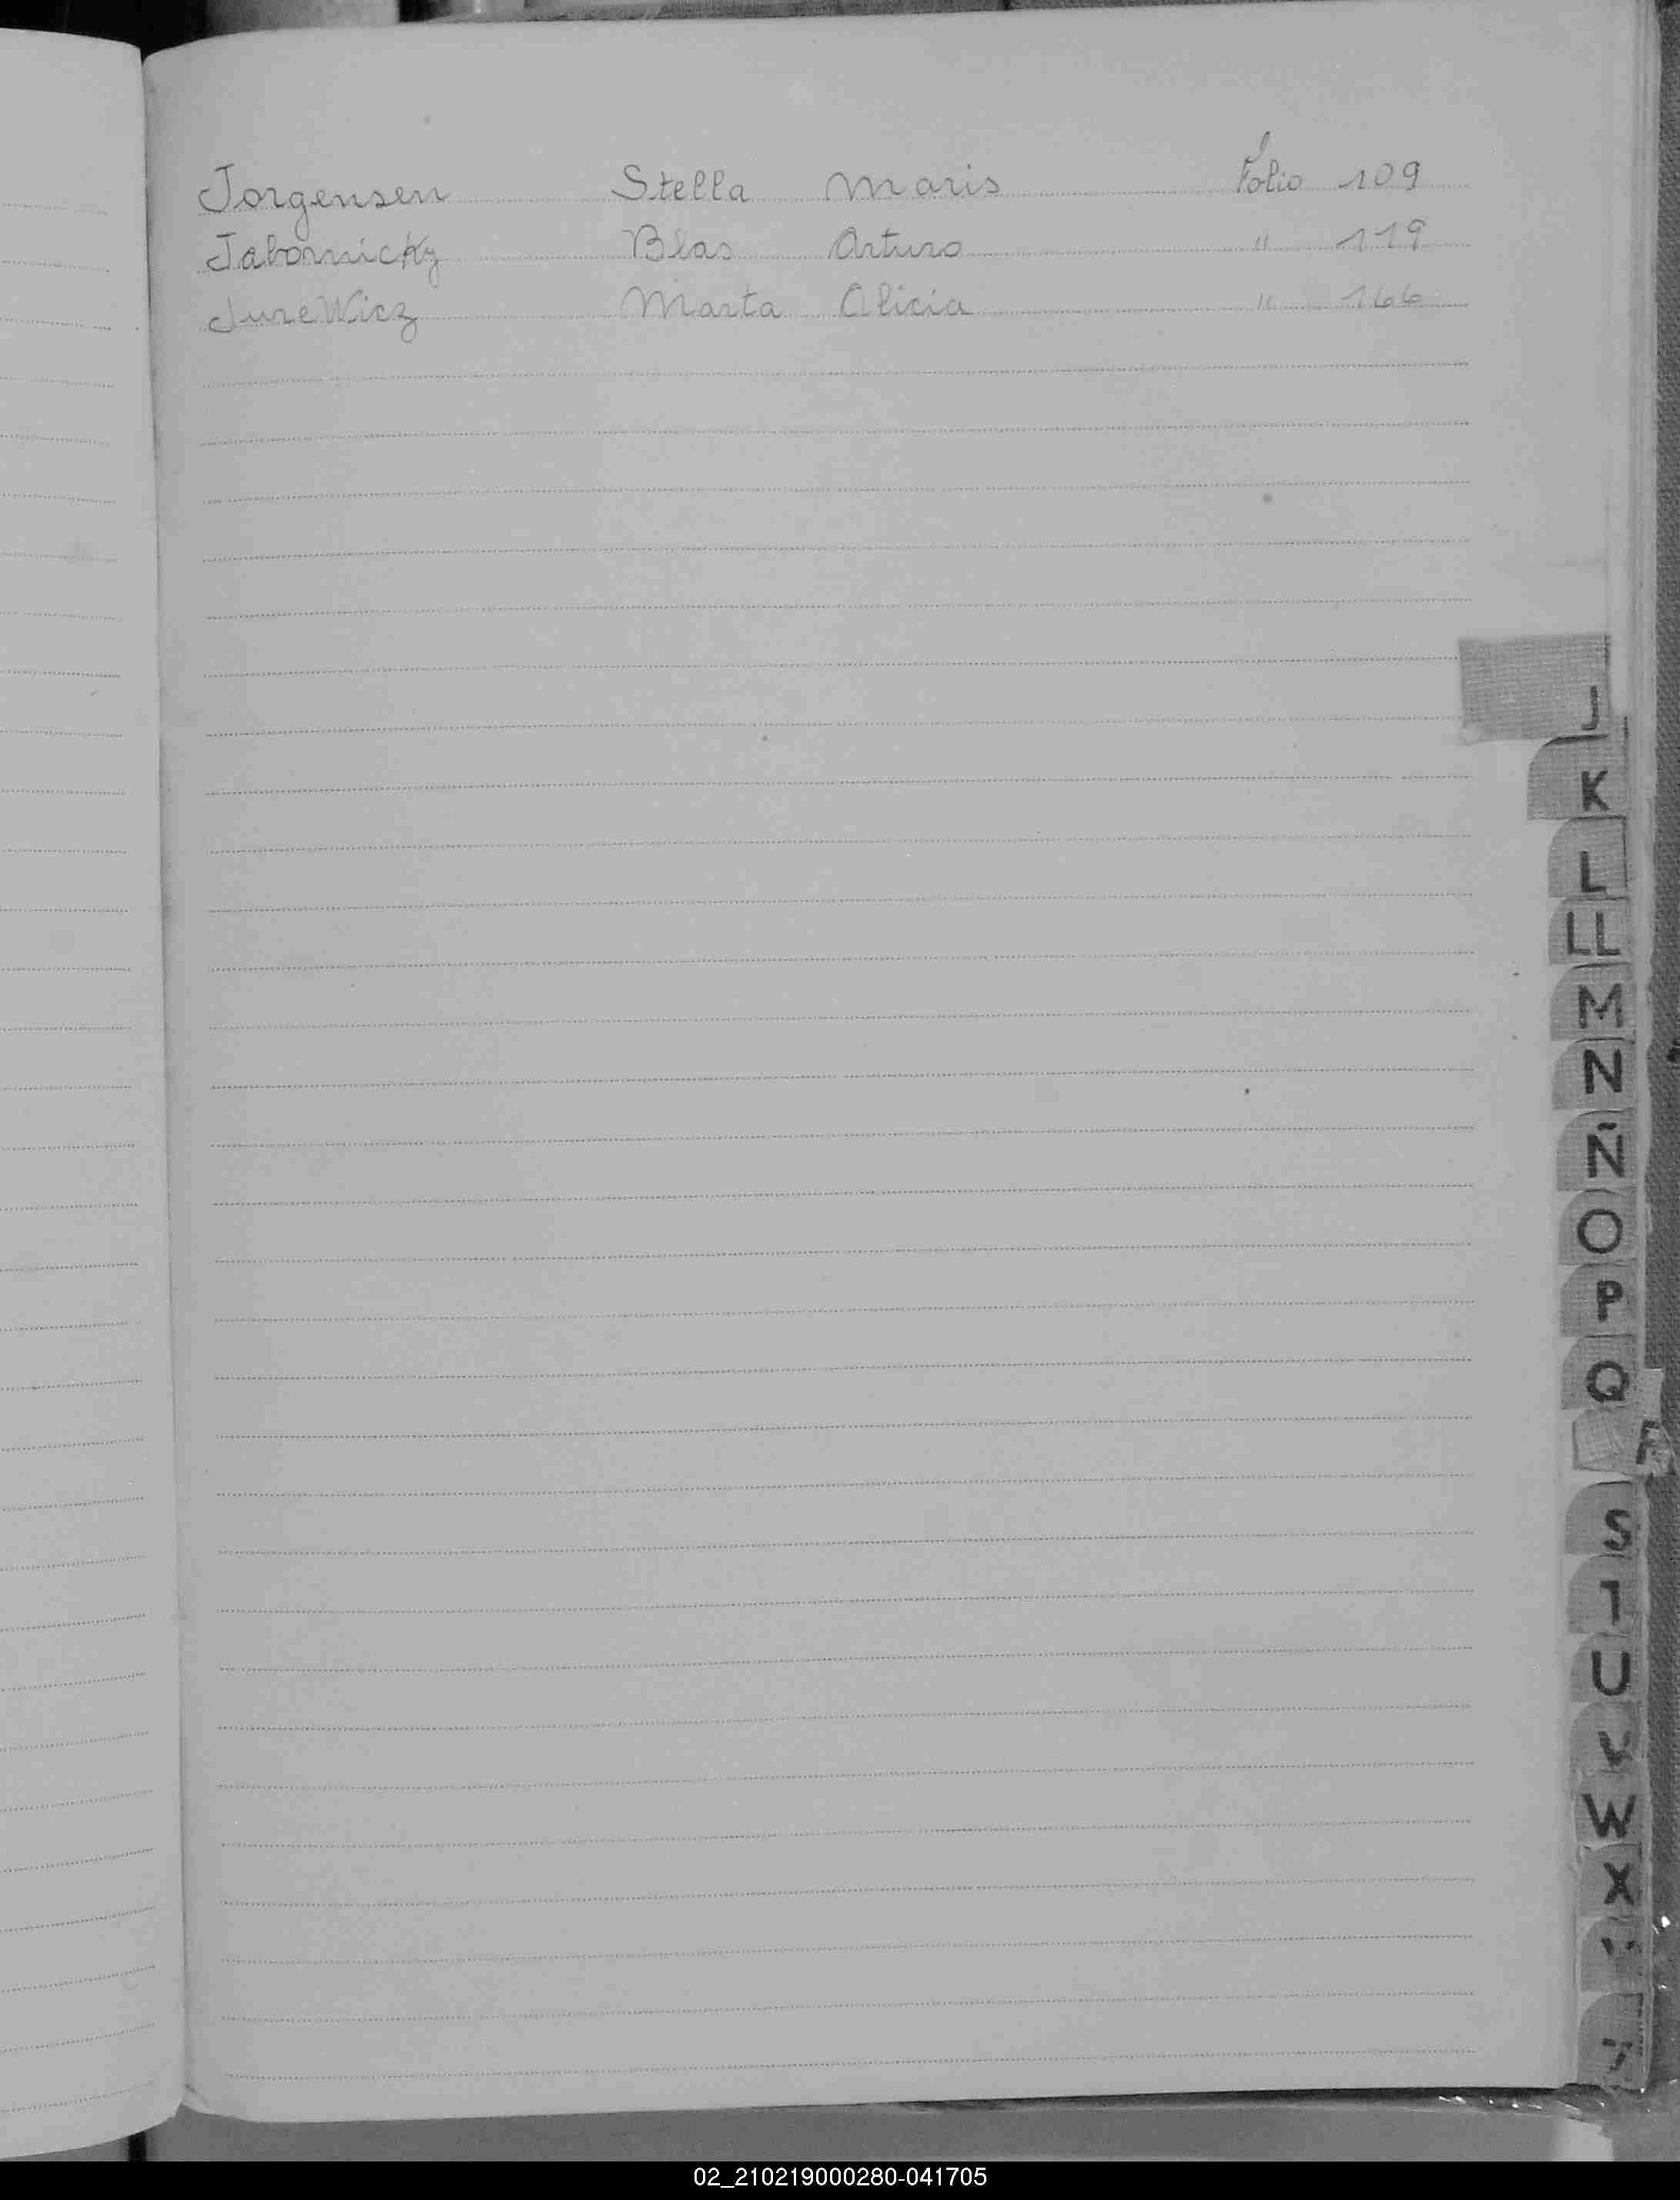 Jorgensen Stella Maris Folio 109
Jabornicky Blas Arturo " 119
JureWicz Marta Alicia " 166
J
K
L
LL
M
N
Ñ
O
P
Q
R
S
T
U
V
W
X
02_210219000280-041705